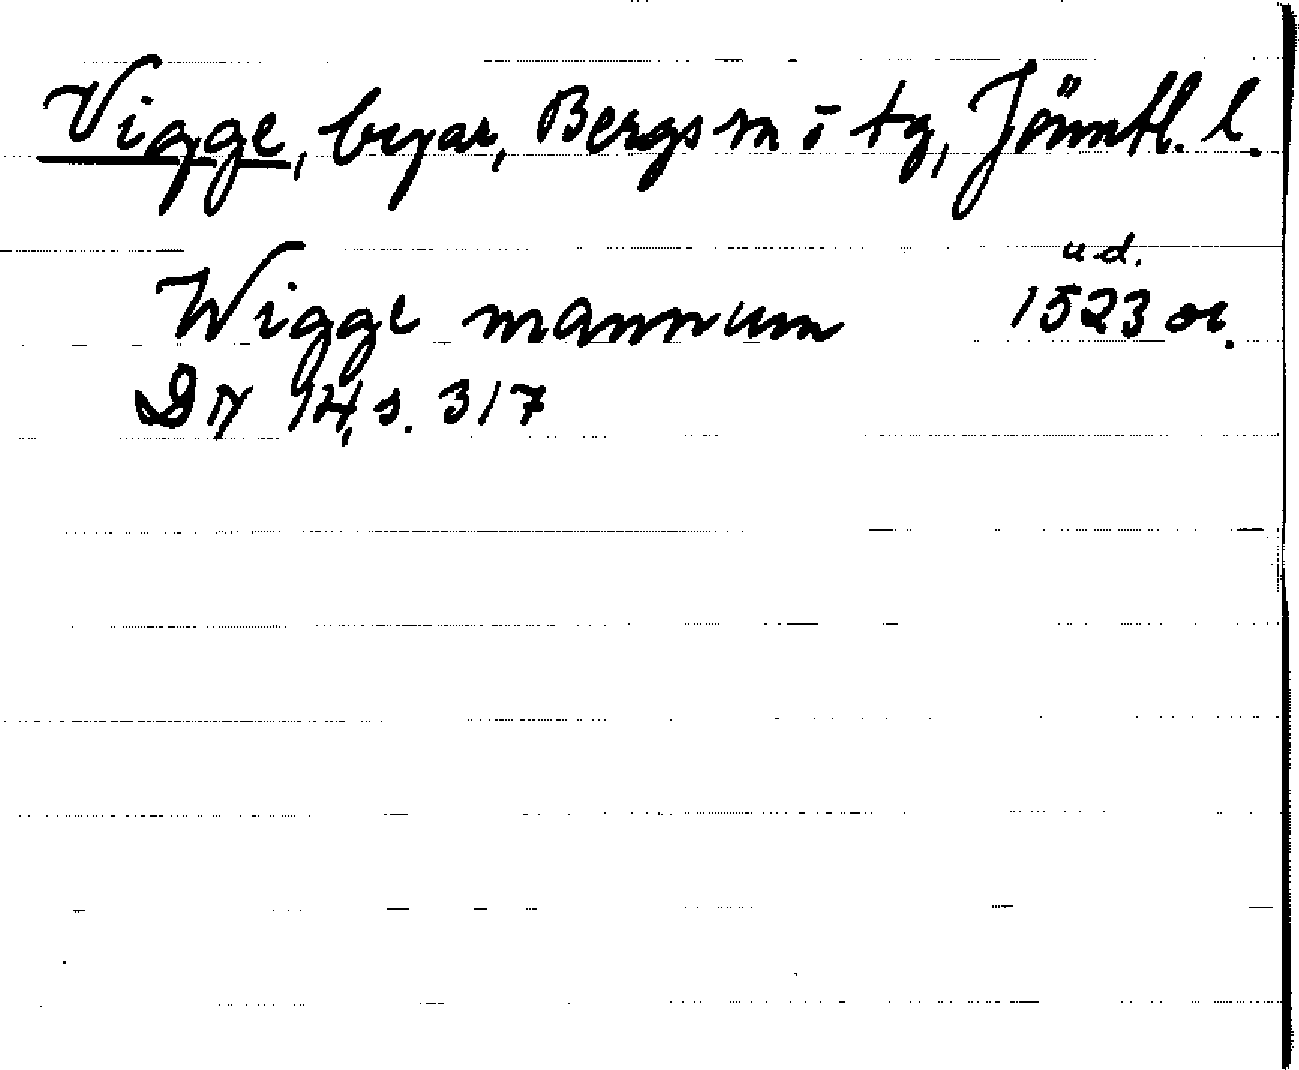 Vigge, byar, Bergs sn o tg, Jämtl. l.
u d.
Wigge mannum 1523 or.
DN 14, s. 317